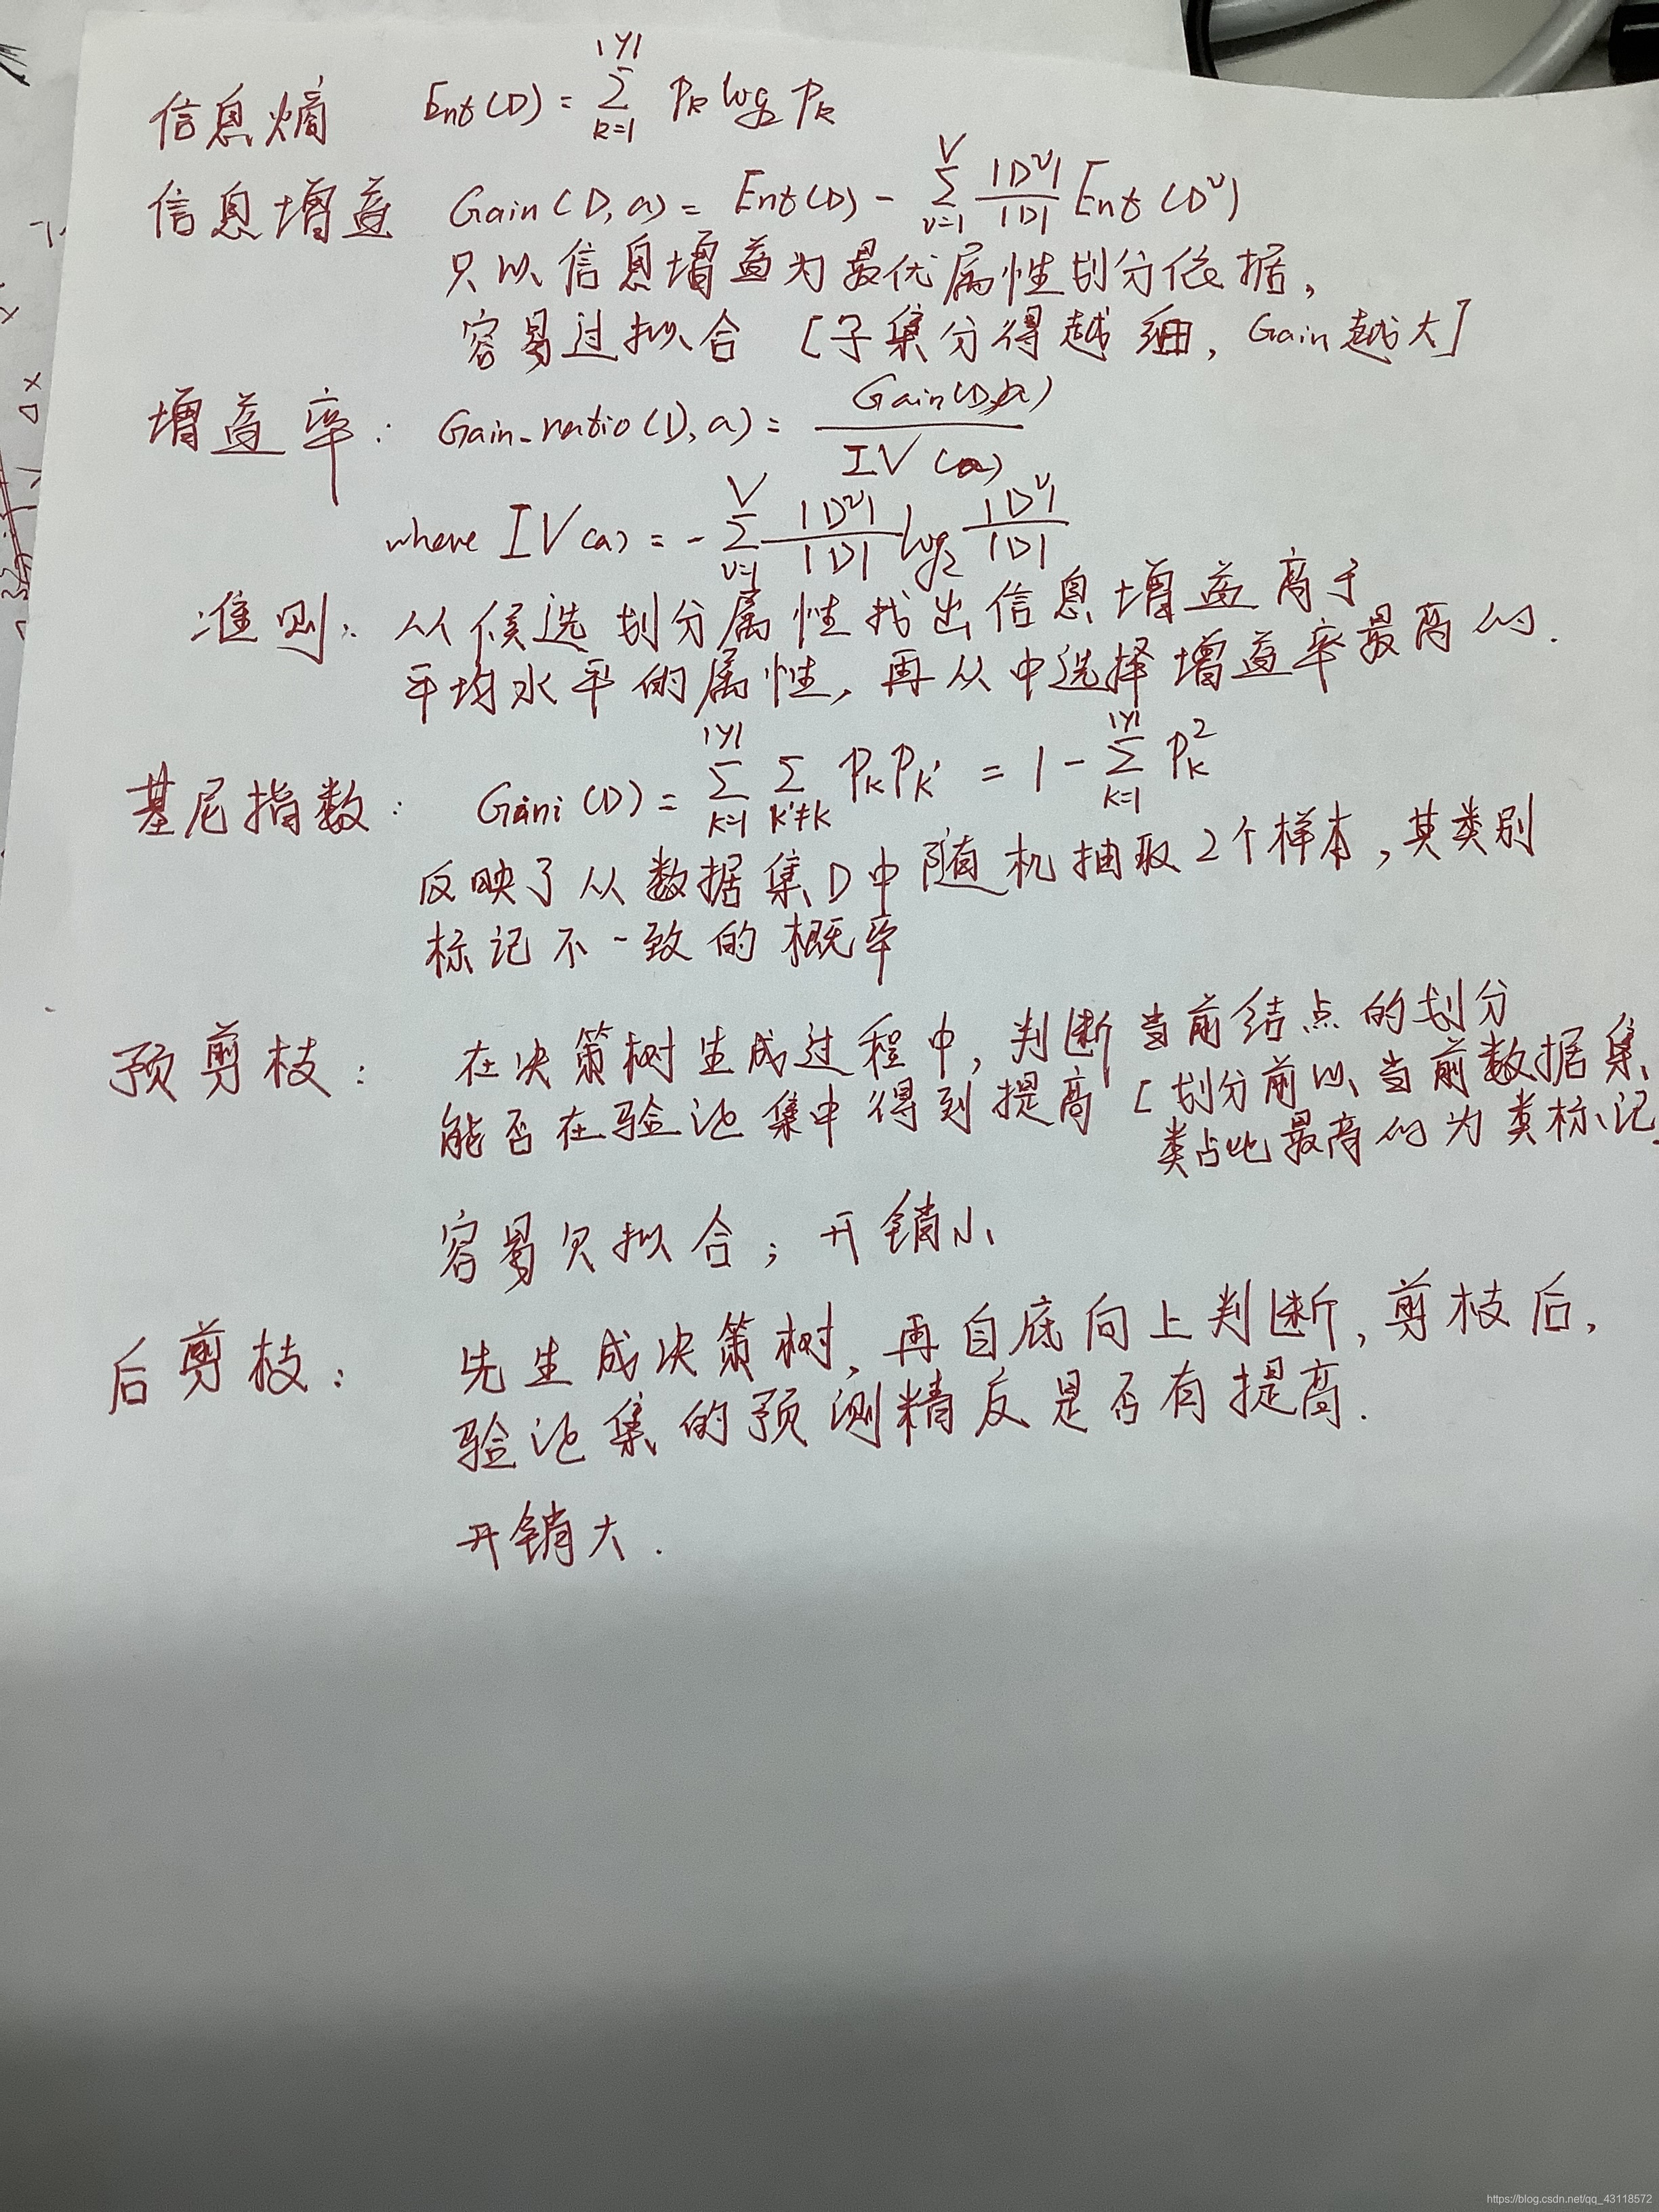 信息熵 Ent(D) = \sum_{k=1}^{|y|} p_k log_2 p_k
信息增益 Gain(D, a) = Ent(D) - \sum_{v=1}^{V} \frac{|D^v|}{|D|} Ent(D^v)
只以信息增益为最优属性划分依据,
容易过拟合 [子集分得越细, Gain越大]
增益率: Gain-ratio(D, a) = \frac{Gain(D,a)}{IV(a)}
where IV(a) = - \sum_{v=1}^{V} \frac{|D^v|}{|D|} log_2 \frac{|D^v|}{|D|}
准则: 从候选划分属性找出信息增益高于
平均水平的属性, 再从中选择增益率最高的.
基尼指数: Gini(D) = \sum_{k=1}^{|y|} \sum_{k'≠k} p_k p_{k'} = 1 - \sum_{k=1}^{|y|} p_k^2
反映了从数据集D中随机抽取2个样本, 其类别
标记不一致的概率
预剪枝: 在决策树生成过程中, 判断当前结点的划分
能否在验证集中得到提高 [划分前以当前数据集
类占比最高的为类标记
容易欠拟合; 开销小
后剪枝: 先生成决策树, 再自底向上判断, 剪枝后,
验证集的预测精度是否有提高.
开销大.
https://blog.csdn.net/qq_43118572